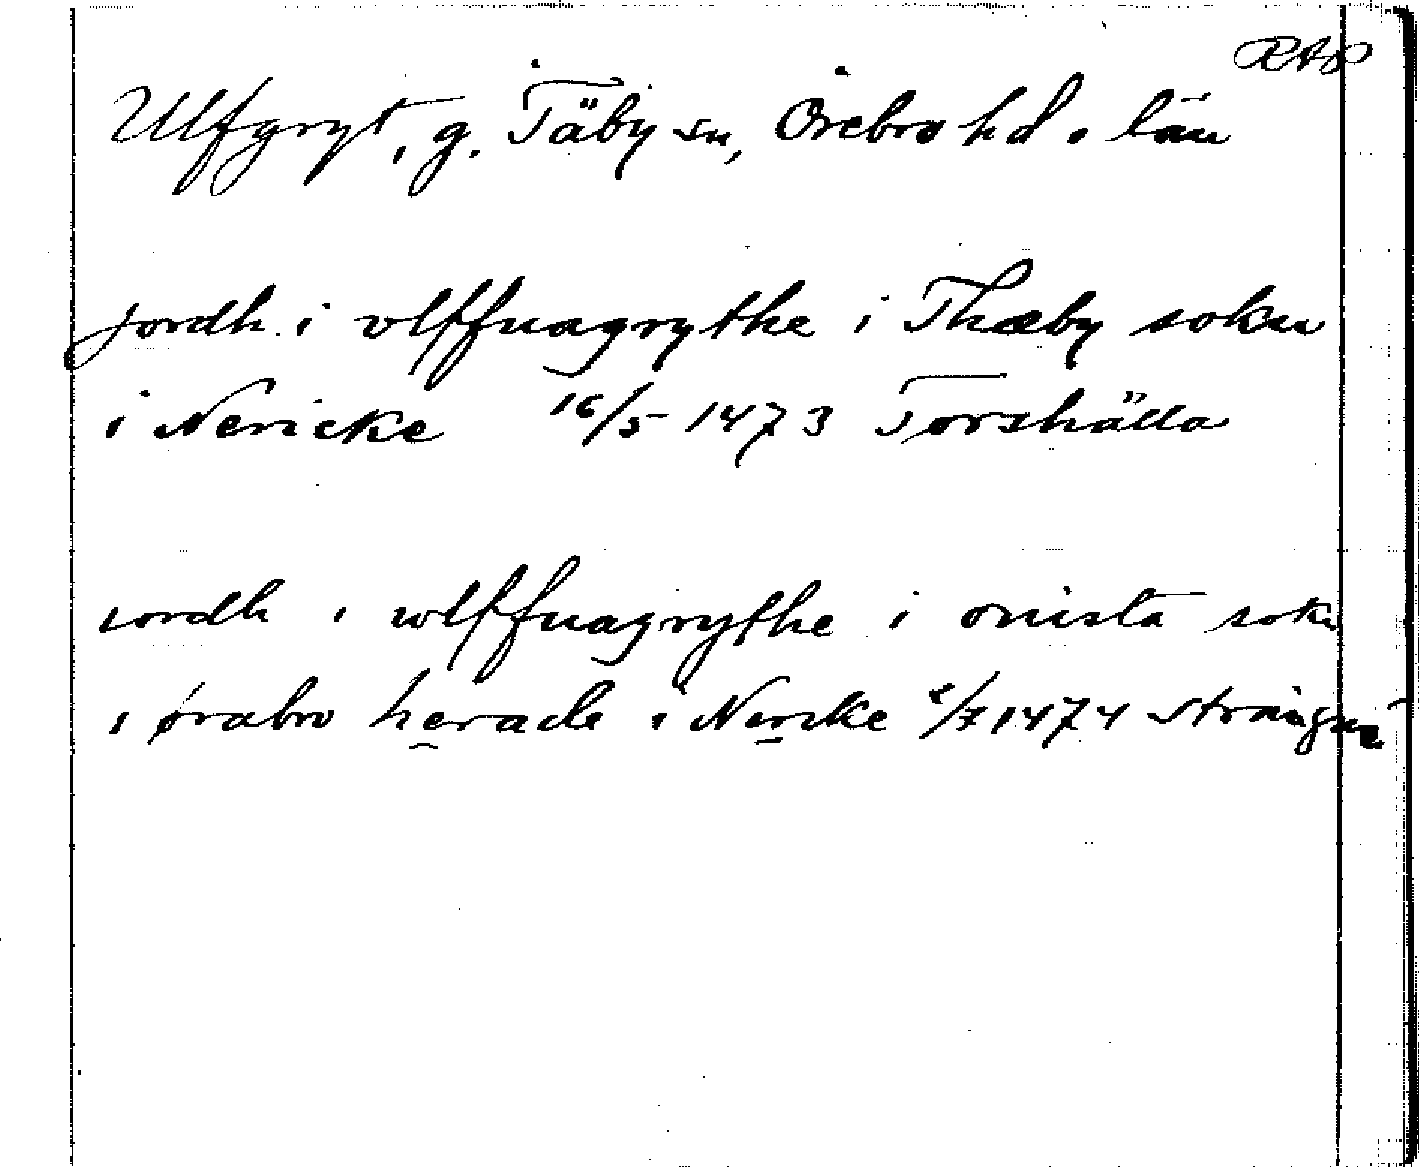 RAP
Ulfgryt, g. Täby sn, Örebro hd o. län
jordh i vlffuagrythe i Thæby sokn
i Nericke 16/5 1473 Torshälla
iordh i wlffuagrythe i onista sokn
i ørabro herade i Nericke /7 1474 Strängnä